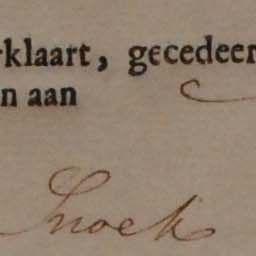 rklaart, gecedeer
n aan
Snoek